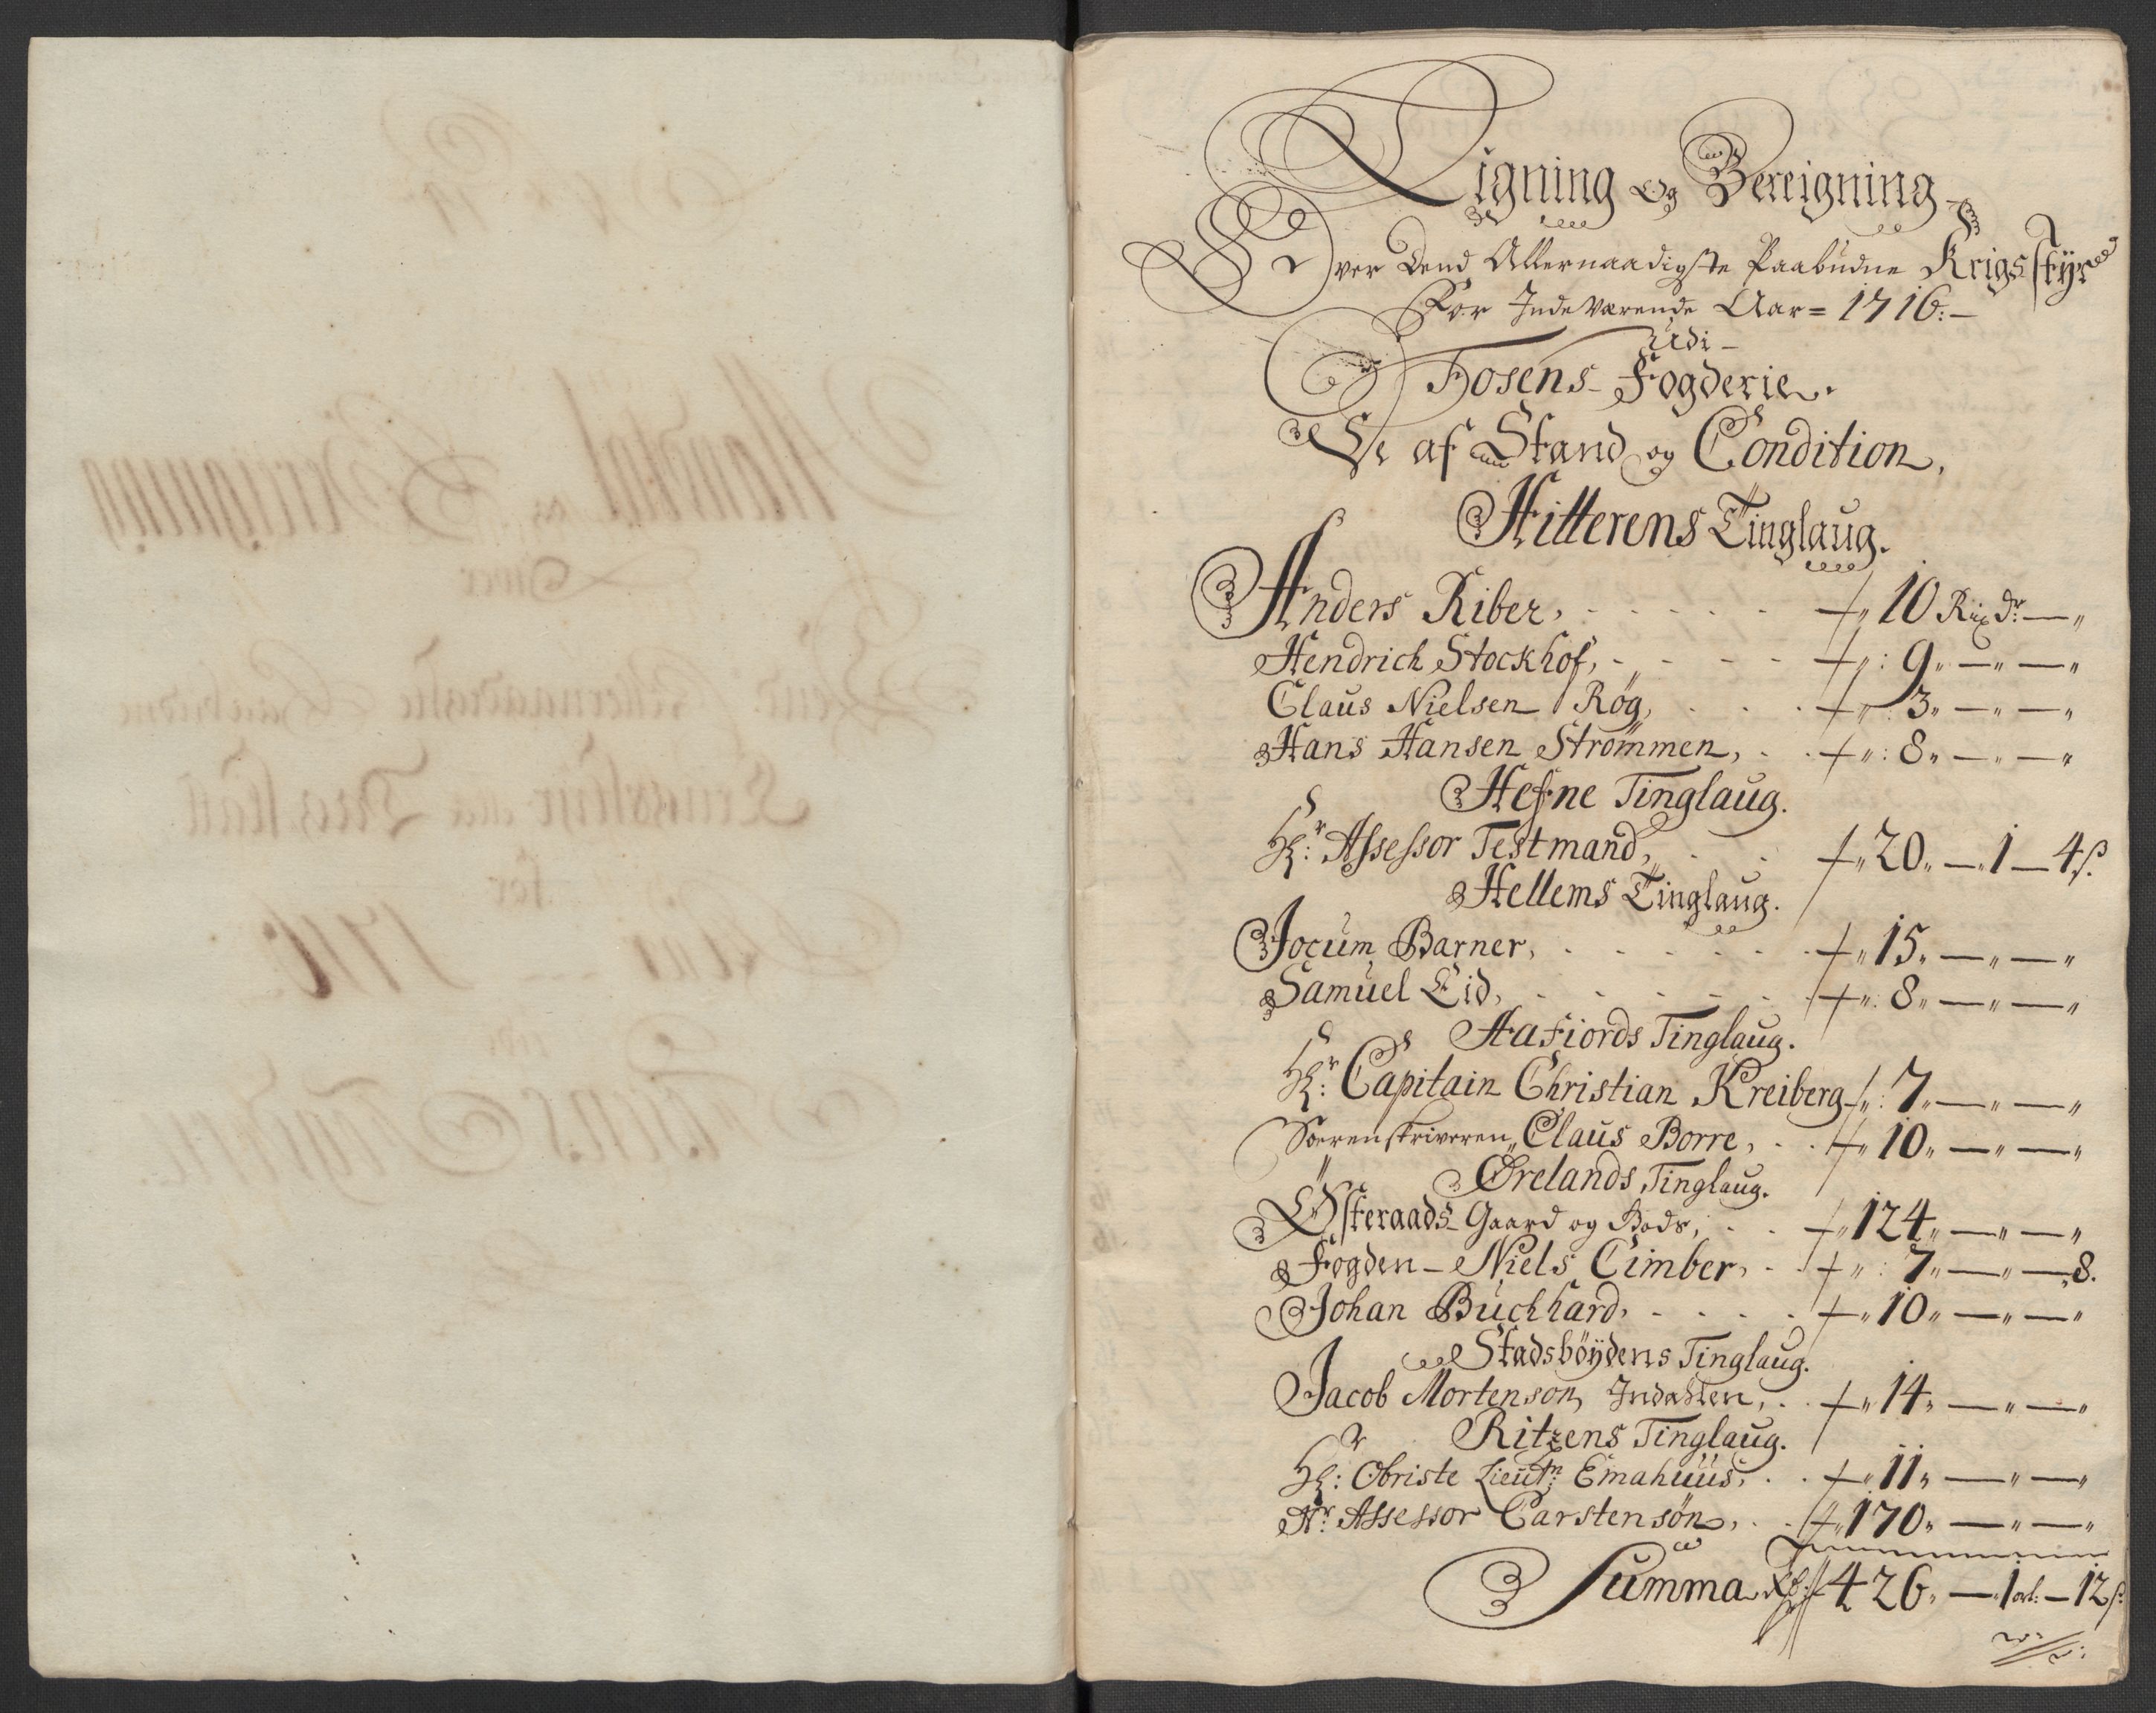 Ligning og Bereigning
Over Dend Allernaadigste Paabudne Krigs Styr
For Indeværende Aar = 1716:
Udi
Fosens Fogderie.
De af Stand og Condition,
Hitterens Tinglaug.
Anders Riber, 10 Rixdr: — „
Hendrich Stockhof, 9 „ — „ — „
Claus Nielsen Røg, 3 „ — „ — „
Hans Hansen Strömmen, 8 „ — „ — „
Hefne Tinglaug.
Hr: Assessor Testmand, 20 „ — 1 — 4 ß.
Hellems Tinglaug.
Jocum Barner, 15 „ — „ — „
Samuel Eid, 8 „ — „ — „
Aafiords Tinglaug.
Hr: Capitain Christian Kreiberg 7 „ — „ — „
Sorenskriveren, Claus Borre, 10 „ — „ — „
Ørelands Tinglaug.
Østeraads Gaard og Gods, 124 „ — „ — „
Fogden Niels Cimber, 7 „ — „ — 8.
Johan Buchhard, 10 „ — „ — „
Stadsböydens Tinglaug.
Jacob Mortenson, 14 „ — „ — „
Ritzens Tinglaug.
Hr: Obriste Lieutn: Emahuus, 11 „ — „ — „
Hr: Assessor Carstensøn, 170 „ — „ — „
Summa Rdr 426 „ — 1 ort: — 12 ß